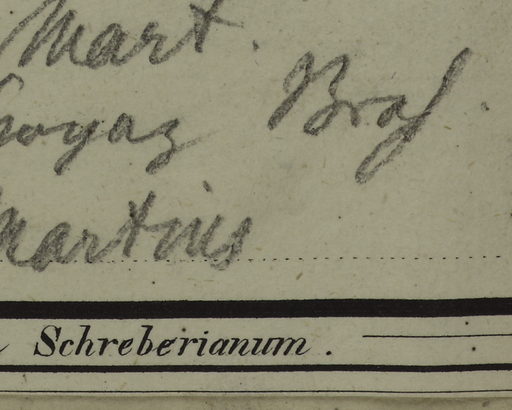 Mart.
Goyaz Bras
Martius
Schreberianum.